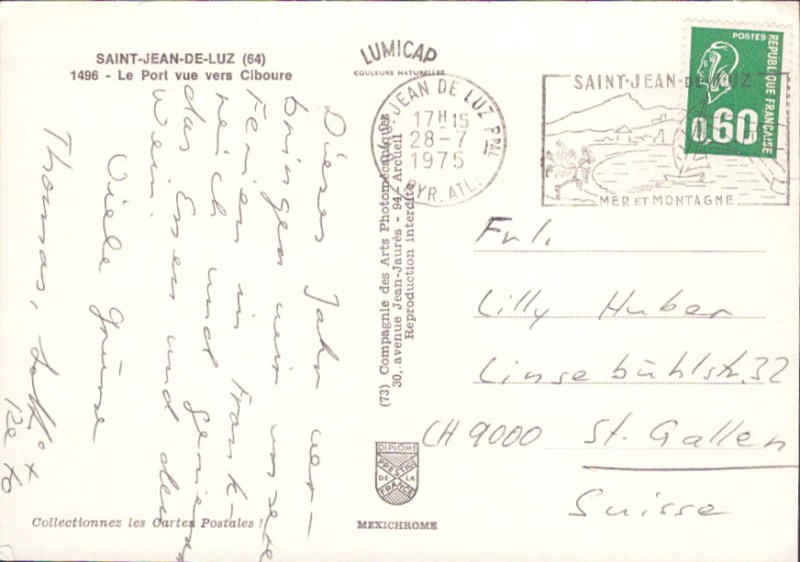 SAINT-JEAN-DE-LUZ (64)
1496 - Le Port vue vers Ciboure
LUMICAP
COULEURS NATURELLES
Dieses Jahr ver-
bringen wir unsere
Ferien in Frank-
reich und geniessen
das Essen und den
Wein.
Viele Grüsse
Thomas,
(73) Compagnie des Arts Photomécaniques
30, avenue Jean-Jaurès - 94 - Arcueil
Reproduction interdite
JEAN DE LUZ PPAL
17H15
28-7
1975
PYR. ATL.
SAINT-JEAN-DE-LUZ
MER ET MONTAGNE
POSTES
REPUBLIQUE FRANÇAISE
0,60
Frl.
Lilly Huber
Linsebühlstr. 32
CH 9000 St. Gallen
Suisse
DIPLOME
PRESTIGE
DE LA
FRANCE
Collectionnez les Cartes Postales !
MEXICHROME